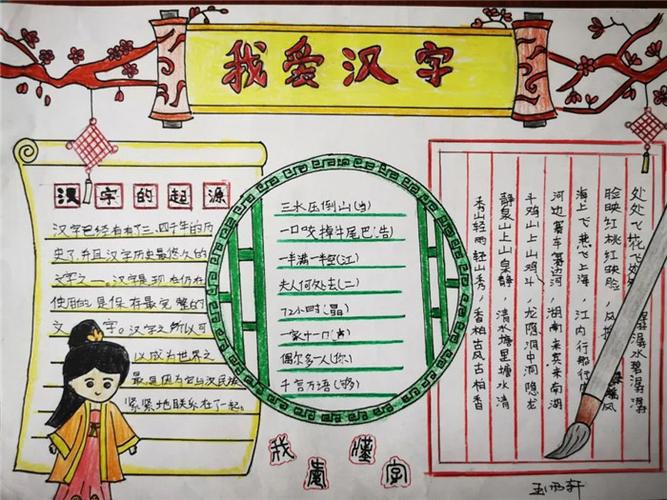 我爱汉字
汉字的起源
汉字已经有有了三、四千年的历
史了,并且汉字历史最悠久的
文字之一。汉字是现在仍在
使用的是保存最完整的
文字。汉字之所以可
以成为世界之
最是因为它与汉民族
紧紧地联系在一起。
三水压倒山()
一口咬掉牛尾巴(告)
一半满一半空(江)
夫人何处去(二)
72小时(晶)
一家十一口()
偶尔多一人(你)
千言万语(够)
处处飞花飞处 潺潺水碧潺潺
脸映红桃红映脸,风 风
海上飞燕飞上海,江内行船行
河边赛车赛边河,湖南来宾来南湖
斗鸡山上山鸡斗,龙隐洞中洞隐龙
静泉山上山泉静,清水塘里塘水清
秀山轻雨轻山秀,香柏古风古柏香
我 懂
字
王雨轩